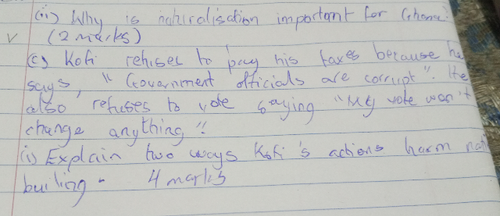 (ii) Why is nahiralisation important for Ghana.
(2 marks)
(c) Kofi refuses to pay his taxes because he
says, "Government officials are corrupt". He
also refuses to vote saying "My vote won't
change anything".
(i) Explain two ways Kofi's actions harm nat
builing - 4 marks